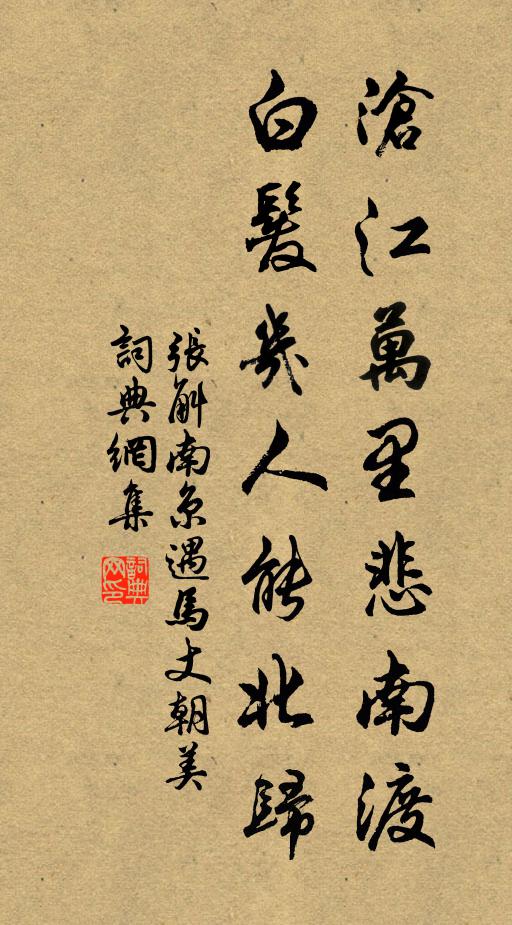 滄江萬里悲南渡
白髮幾人能北歸
張斛南京遇馬丈朝美
詞典網集
詞典網印